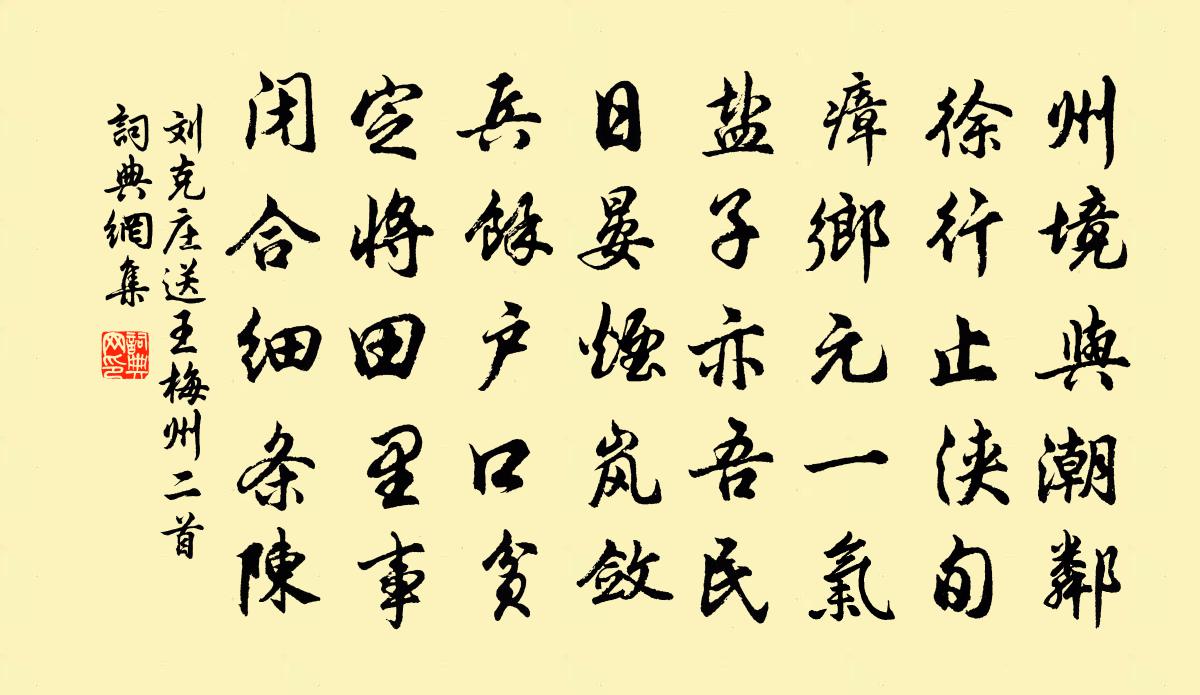 州境與潮鄰
徐行止浹旬
瘴鄉元一氣
盐子亦吾民
日晏煙岚斂
兵餘户口貧
定將田里事
闭合细条陳
刘克庄送王梅州二首
詞典網集
詞典网印